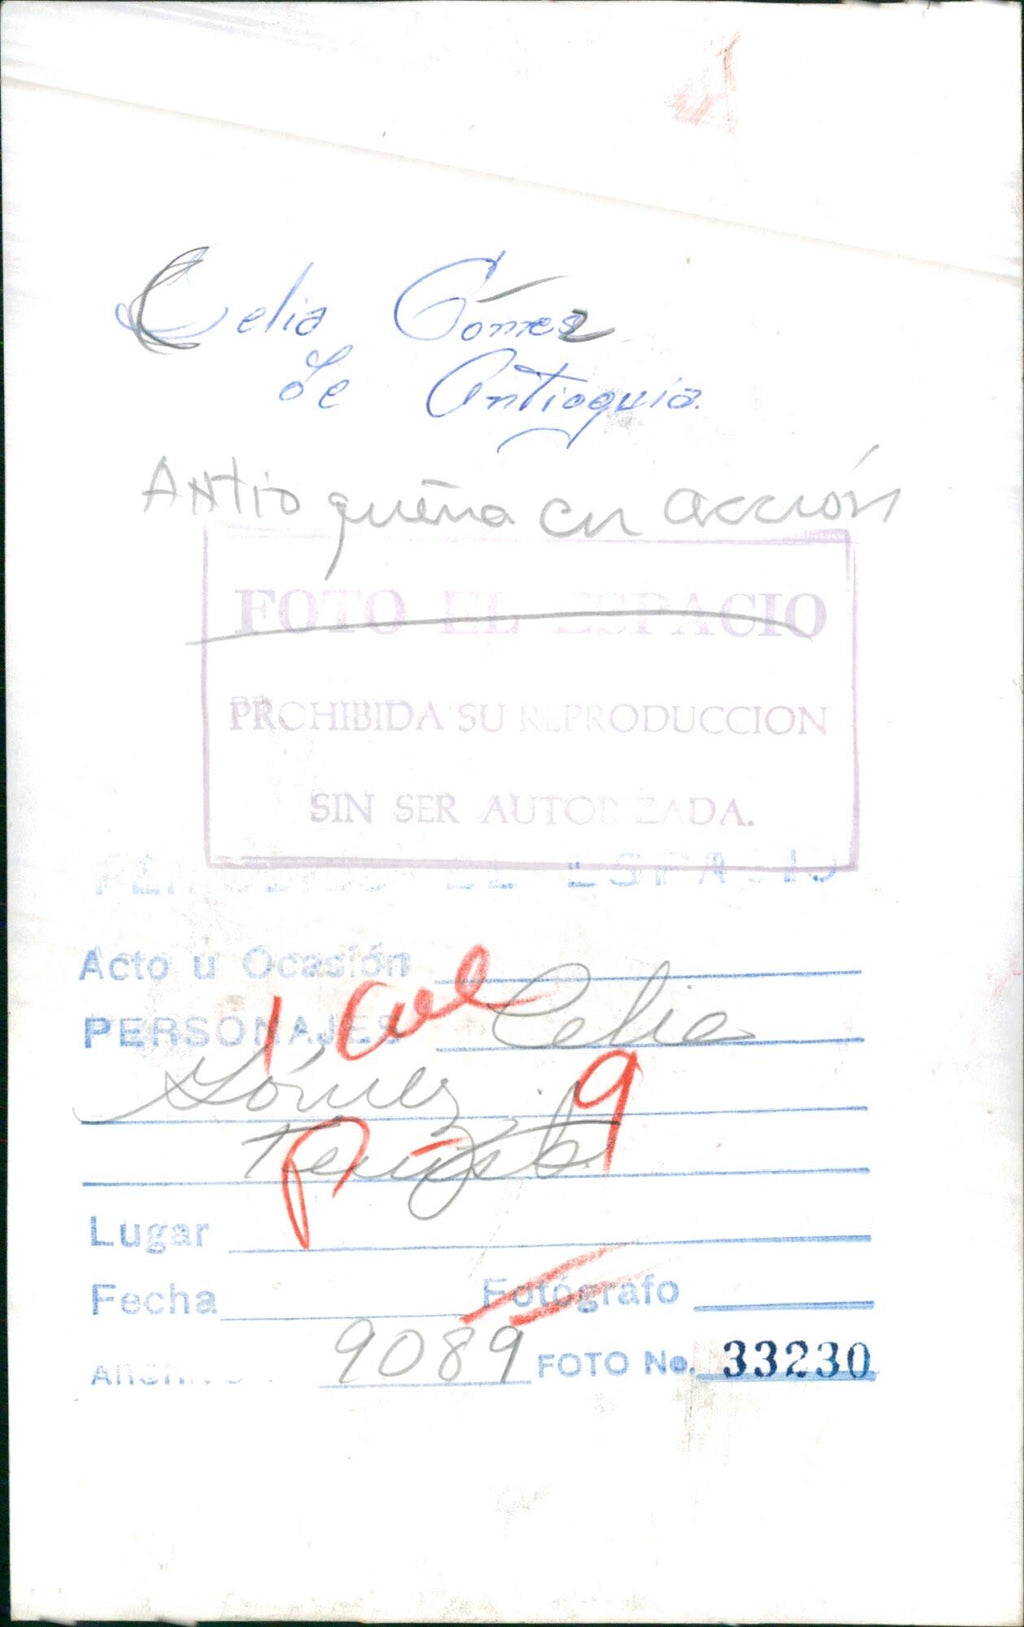 Celia Gómez
de Antioquia.
Antioqueña en acción
FOTO EL ESPACIO
PROHIBIDA SU REPRODUCCION
SIN SER AUTORIZADA.
PERIODICO EL ESPACIO
Acto u Ocasión
1 Col
PERSONAJES Celia
Gómez
Tenista
P-9
Lugar
Fecha Fotógrafo
ARCHIVO 9089 FOTO No. 33230